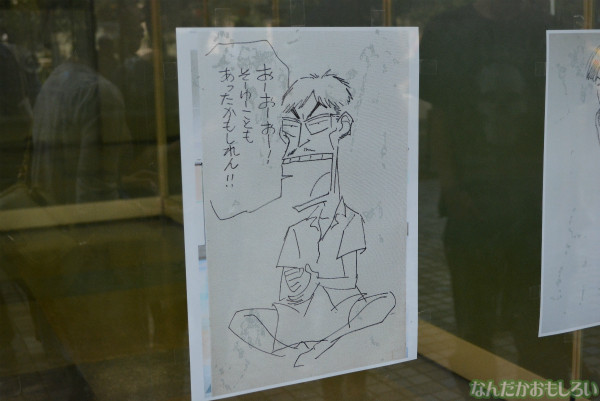 おーおーおー!
そーゆことも
あったかもしれん!!
なんだかおもしろい